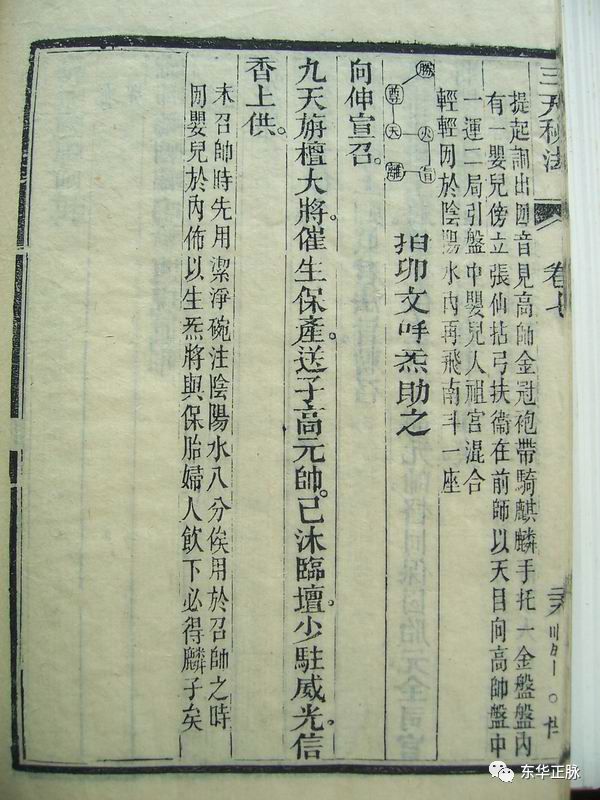 三天秘法
卷七
提起訓出回音見高帥金冠袍帶騎麒麟手托一金盤盤內
有一嬰兒傍立張仙拈弓扶衛在前師以天目向高帥盤中
一運二局引盤中嬰兒人祖宮混合
輕輕囙於陰陽水內再飛南斗一座
勝
尊
天
火
盲
離
拍卯文呼炁助之
向伸宣召。
九天旃檀大將催生保產。送子高元帥。已沐臨壇。少駐威光。信
香上供。
未召帥時先用潔淨碗注陰陽水八分俟用於召帥之時
囙嬰兒於內佈以生炁將與保胎婦人飲下必得麟子矣
东华正脉